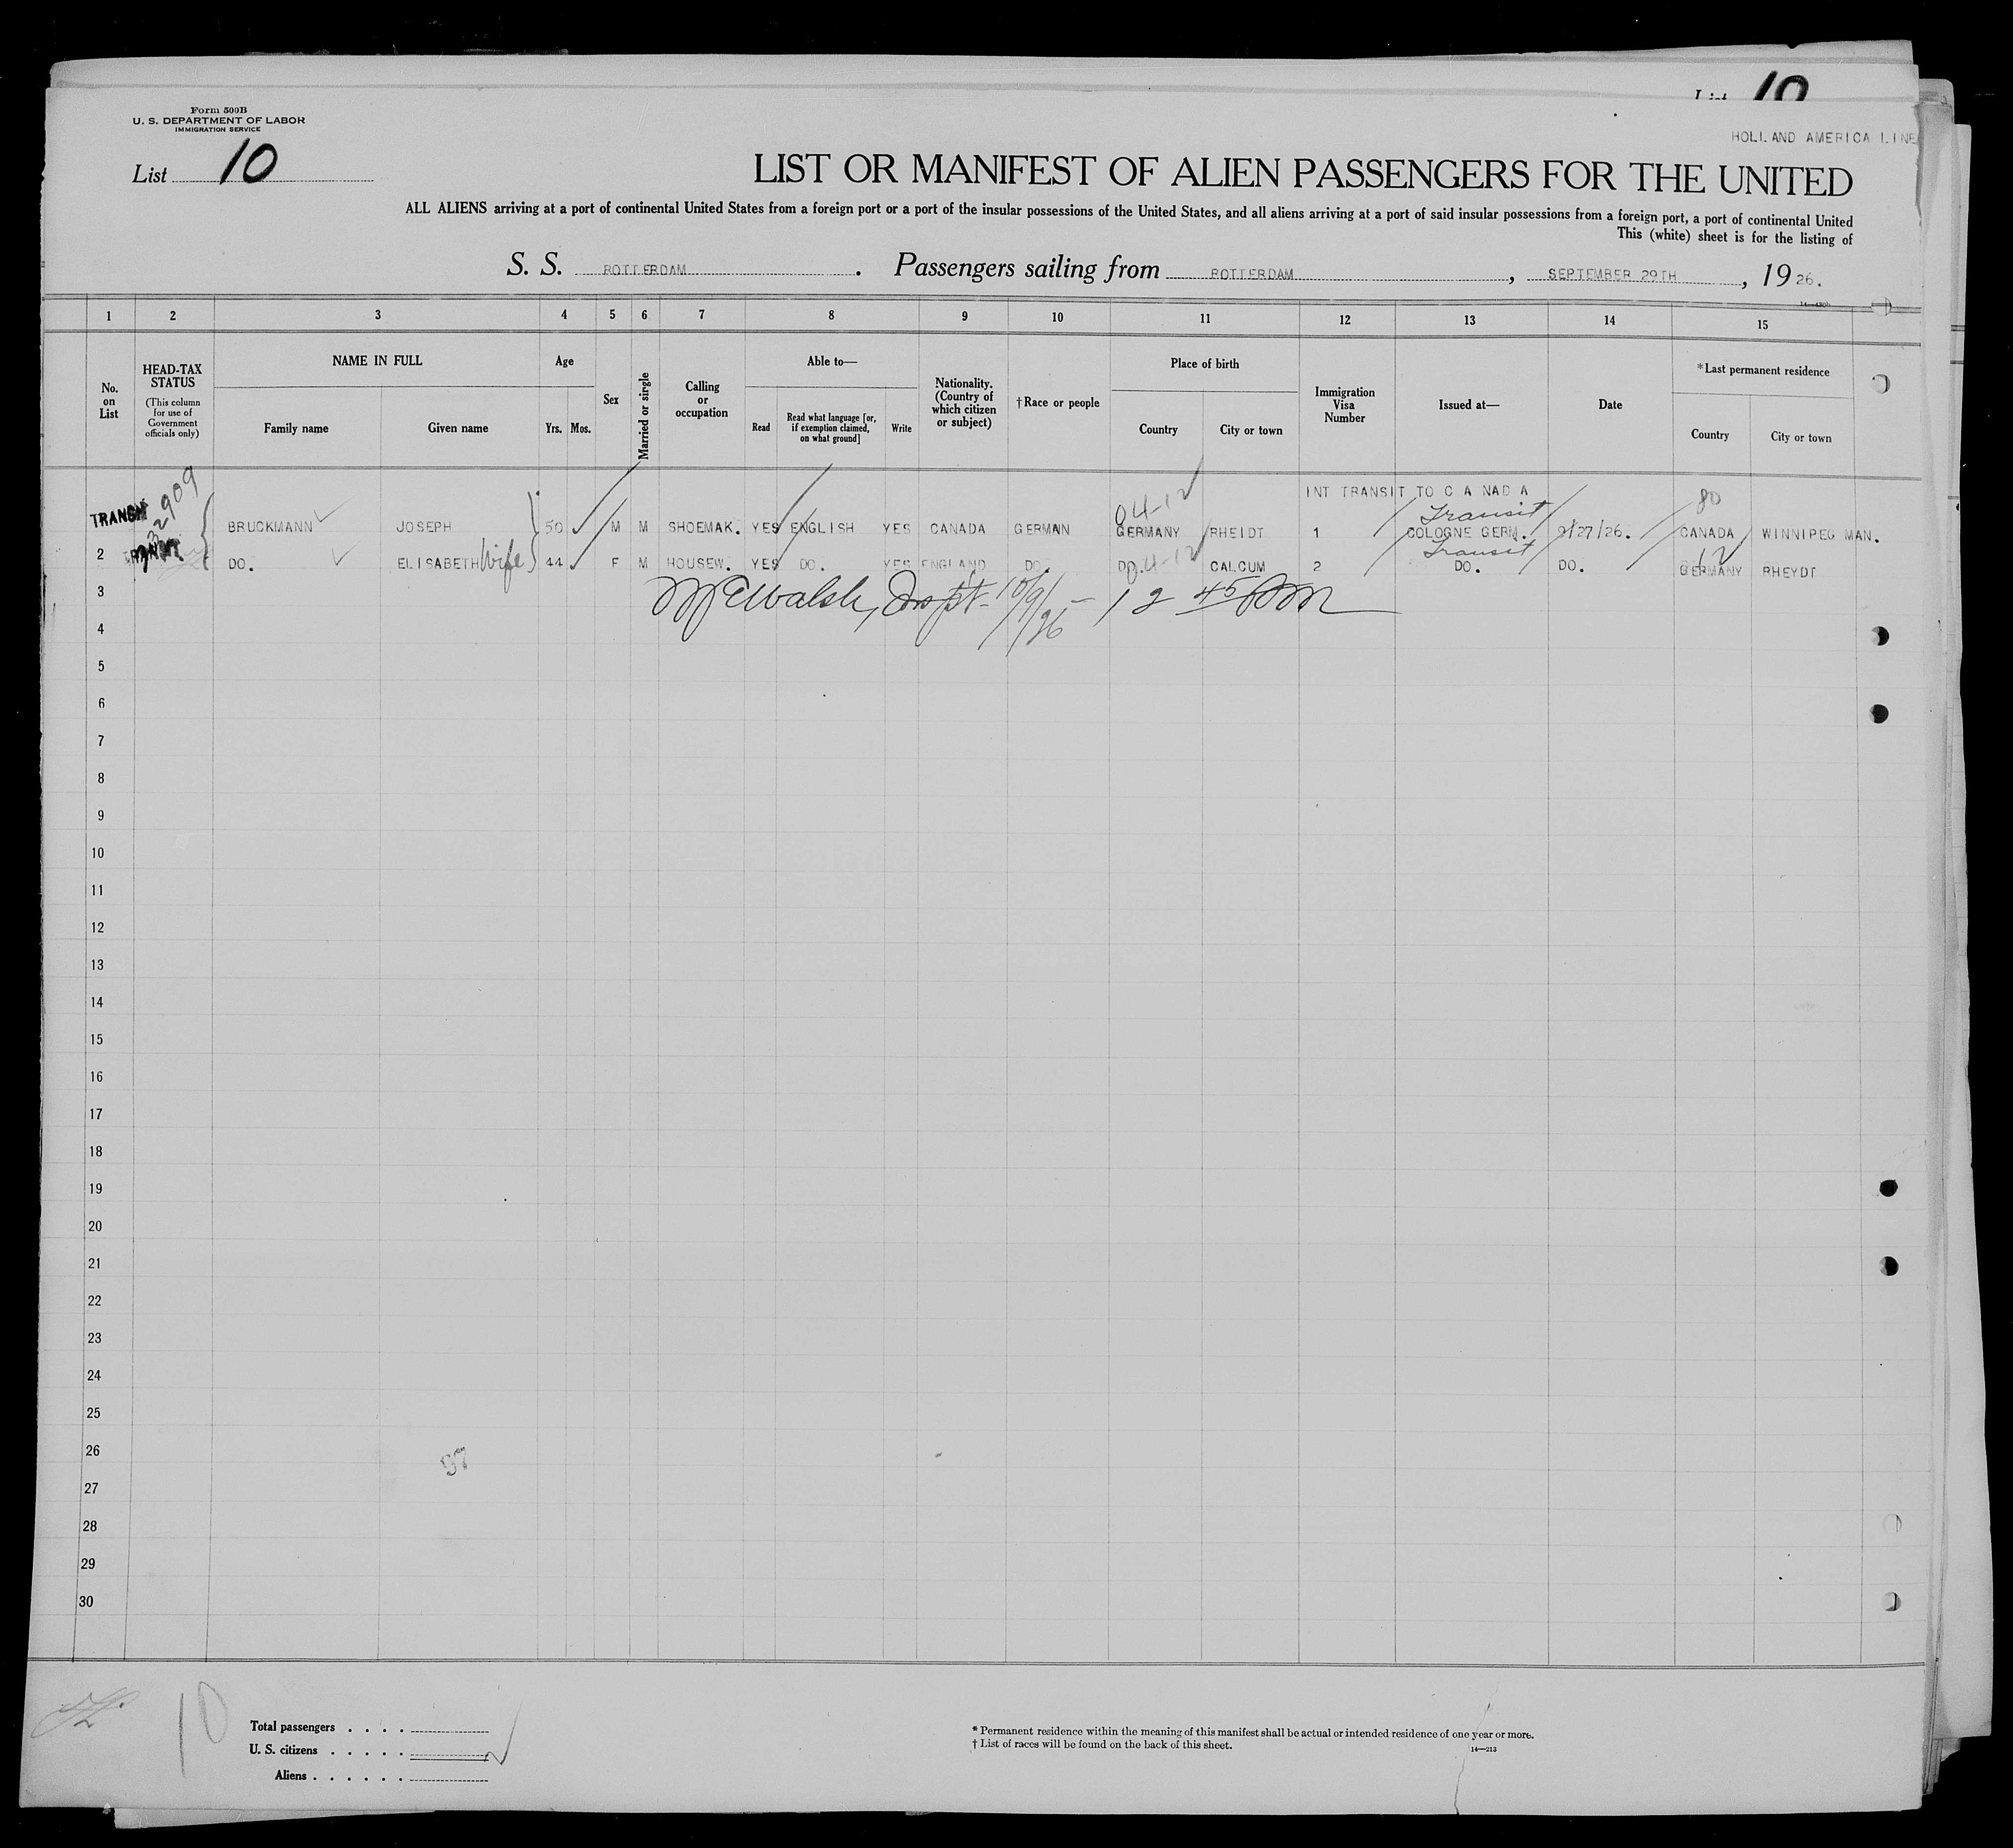 List 10
HOLLAND AMERICA LINE
Form 500B
U. S. DEPARTMENT OF LABOR
IMMIGRATION SERVICE
List 10
LIST OR MANIFEST OF ALIEN PASSENGERS FOR THE UNITED
ALL ALIENS arriving at a port of continental United States from a foreign port or a port of the insular possessions of the United States, and all aliens arriving at a port of said insular possessions from a foreign port, a port of continental United
This (white) sheet is for the listing of
S. S. ROTTERDAM . Passengers sailing from ROTTERDAM , SEPTEMBER 29TH , 19 26.
1 2 3 4 5 6 7 8 9 10 11 12 13 14 15
No. on List
HEAD-TAX STATUS (This column for use of Government officials only)
NAME IN FULL
Family name Given name
Age
Yrs. Mos.
Sex
Married or single
Calling or occupation
Able to—
Read Read what language [or, if exemption claimed, on what ground] Write
Nationality. (Country of which citizen or subject)
†Race or people
Place of birth
Country City or town
Immigration Visa Number
Issued at—
Date
*Last permanent residence
Country City or town
2909
INT TRANSIT TO C A NAD A
04-12 Transit 80
TRANSIT BRUCKMANN JOSEPH 50 M M SHOEMAK. YES ENGLISH YES CANADA GERMAN GERMANY RHEIDT 1 COLOGNE GERM. 9/27/26. CANADA WINNIPEG MAN.
04-12 Transit 12
2 DO. ELISABETH Wife 44 F M HOUSEW. YES DO. YES ENGLAND DO. DO. CALCUM 2 DO. DO. GERMANY RHEYDT
3 McWalsh, Inspt- 10/9/26 - 12 45 PM
4
5
6
7
8
9
10
11
12
13
14
15
16
17
18
19
20
21
22
23
24
25
26
97
27
28
29
30
10
Total passengers . . . .
U. S. citizens . . . . .
Aliens . . . . . .
* Permanent residence within the meaning of this manifest shall be actual or intended residence of one year or more.
† List of races will be found on the back of this sheet.
14—213